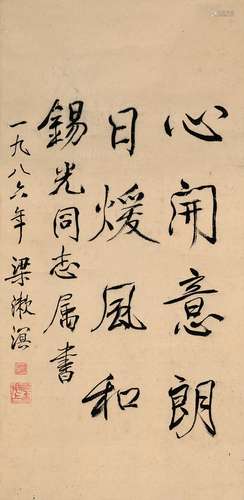 心开意朗
日煖风和
錫光同志属书
一九八六年 梁漱溟